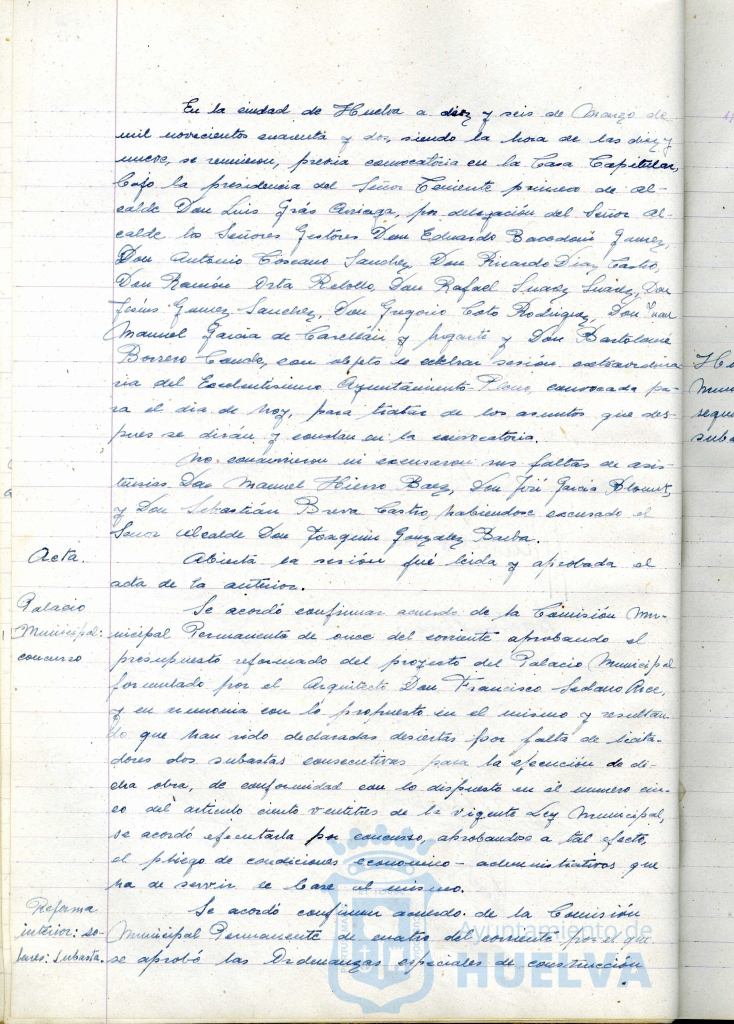 En la ciudad de Huelva a diez y seis de Marzo de
mil novecientos cuarenta y dos, siendo la hora de las diez y
nueve, se reunieron, previa convocatoria en la Casa Capitular,
bajo la presidencia del Señor Teniente primero de al-
calde Don Luis Grás Arriaga, por delegación del Señor Al-
calde los Señores Gestores Don Eduardo Gamez,
Don Antonio Toscano Sanchez, Don Ricardo Diaz Castro,
Don Ramón Orta Rebollo, Don Rafael Suarez Suárez, Don
Jesús Gamez Sanchez, Don Gregorio Coto Rodriguez, Don Juan
Manuel Garcia de Castellán y Don Bartolomé
Borrero Conde, con objeto de celebrar sesión extraordina-
ria del Excelentisimo Ayuntamiento Pleno, convocada pa-
ra el dia de hoy, para tratar de los asuntos que des-
pues se dirán y constan en la convocatoria.
No concurrieron ni excusaron sus faltas de asis-
tencias Don Manuel Hierro Baez, Don José Garcia
y Don Sebastián Breva Castro, habiendose excusado el
Señor Alcalde Don Joaquin Gonzalez Barba.
Acta.
Abierta la sesión fué leida y aprobada el
acta de la anterior.
Palacio
Municipal:
concurso
Se acordó confirmar acuerdo de la Comisión Mu-
nicipal Permanente de once del corriente aprobando el
presupuesto reformado del proyecto del Palacio Municipal
formulado por el Arquitecto Don Francisco Sedano Arce,
y en armonia con lo propuesto en el mismo y resultan-
do que han sido declaradas desiertas por falta de licita-
dores dos subastas consecutivas para la ejecución de di-
cha obra, de conformidad con lo dispuesto en el numero cin-
co del articulo ciento ventitres de la vigente Ley Municipal,
se acordó ejecutarla por concurso, aprobandose a tal efecto,
el pliego de condiciones economico-administrativas que
ha de servir de base al mismo.
Reforma
interior: so-
lares: Subasta.
Se acordó confirmar acuerdo de la Comisión
Municipal Permanente de cuatro del corriente por el que
se aprobó las Ordenanzas especiales de construcción
Ayuntamiento de
HUELVA